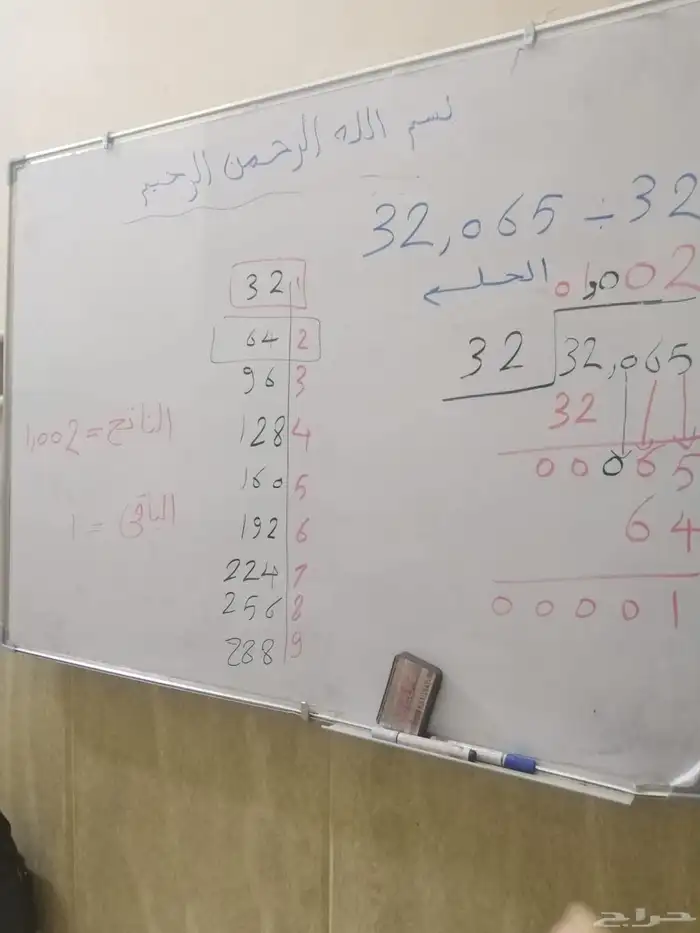 بسم الله الرحمن الرحيم
32,065 ÷ 32
الحل
01,002
32 32,065
32
00065
64
00001
32 1
64 2
96 3
128 4
160 5
192 6
224 7
256 8
288 9
الناتج = 1,002
الباقي = 1
حراج